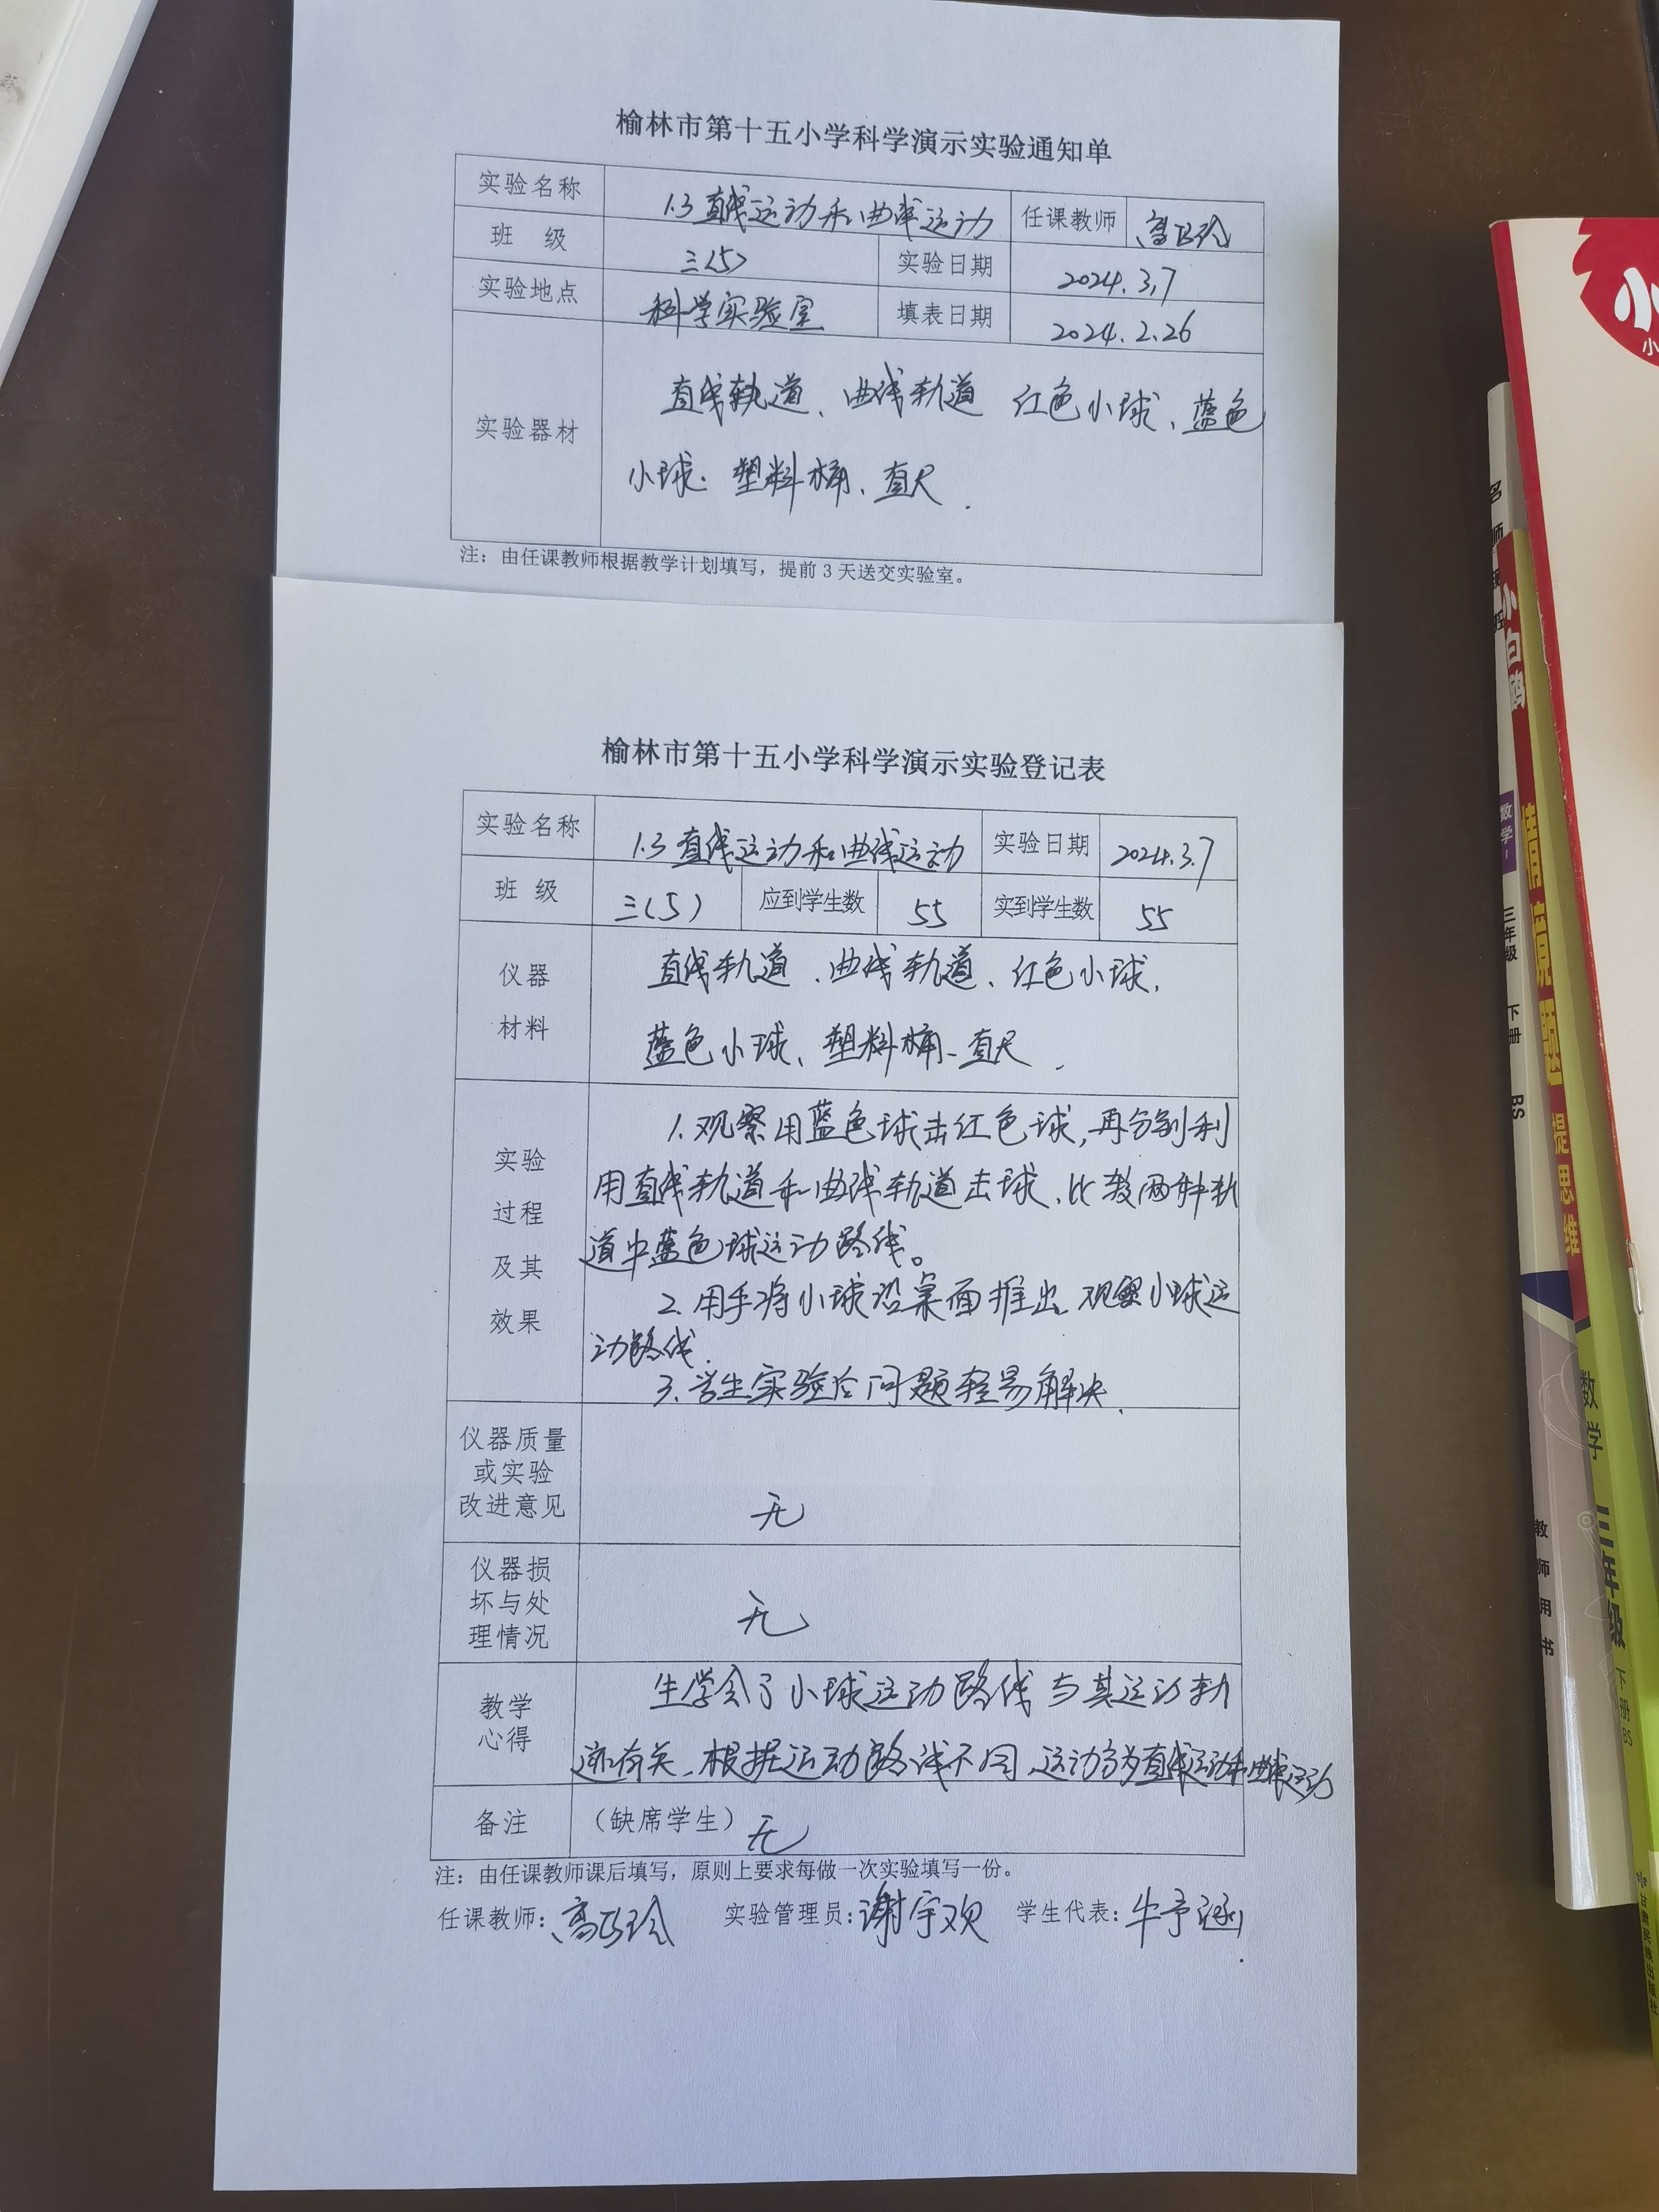 榆林市第十五小学科学演示实验通知单
实验名称 1.3 直线运动和曲线运动 任课教师
班 级 三(5) 实验日期 2024.3.7
实验地点 科学实验室 填表日期 2024.2.26
实验器材
直线轨道、曲线轨道 红色小球、蓝色
小球. 塑料桶、直尺.
注：由任课教师根据教学计划填写，提前 3 天送交实验室。
榆林市第十五小学科学演示实验登记表
实验名称 1.3 直线运动和曲线运动 实验日期 2024.3.7
班 级 三(5) 应到学生数 55 实到学生数 55
仪器
材料
直线轨道、曲线轨道、红色小球,
蓝色小球、塑料桶、直尺.
实验
过程
及其
效果
1. 观察用蓝色球击红色球,再分别利
用直线轨道和曲线轨道击球,比较两种轨
道中蓝色球运动路线。
2. 用手将小球沿桌面推出,观察小球运
动路线.
3. 学生实验后问题轻易解决.
仪器质量
或实验
改进意见
无
仪器损
坏与处
理情况
无
教学
心得
生学会了小球运动路线与其运动轨
迹有关,根据运动路线不同,运动分为直线运动和曲线运动
备注 （缺席学生）无
注：由任课教师课后填写，原则上要求每做一次实验填写一份。
任课教师： 实验管理员：谢宇欢 学生代表：牛予涵
小
小白鸥
数学
三年级
下册
BS
情境题
提思维
数学
三年级
下册
BS
教师用书
甘肃民族出版社